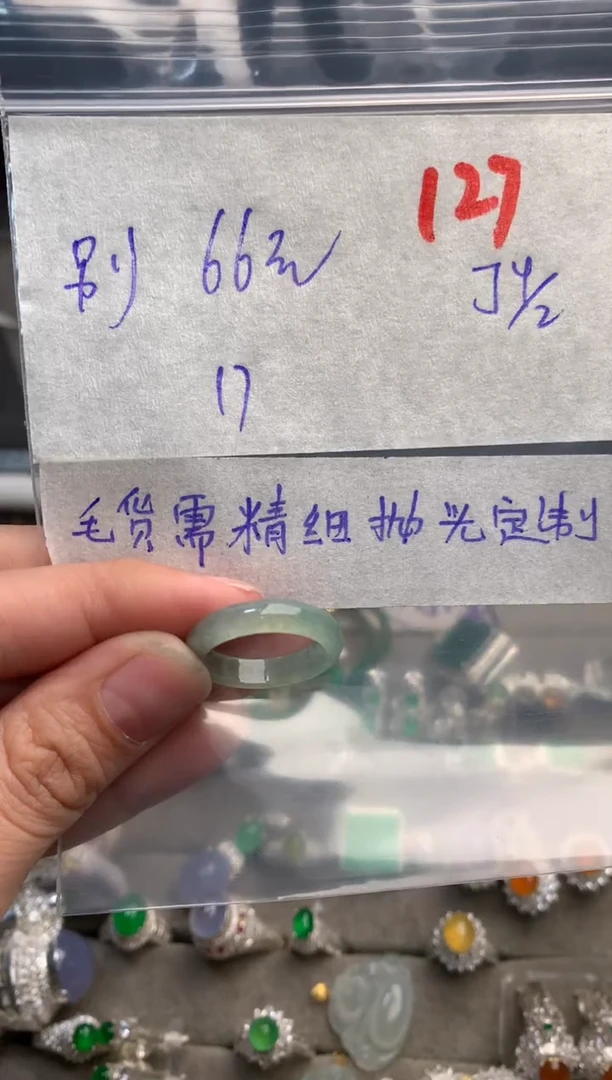 127
别 66元
J4/2
17
毛货需精细抛光定制